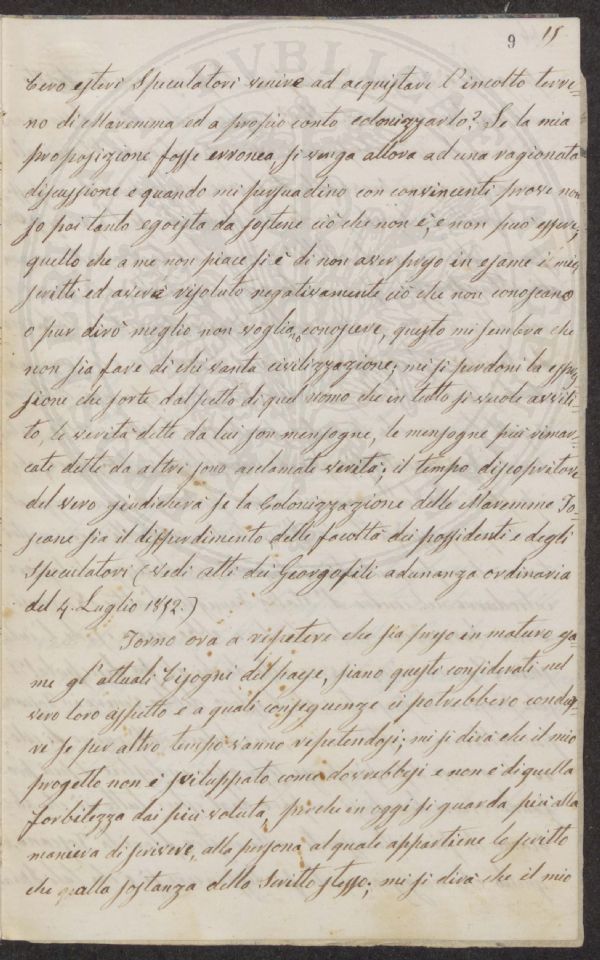 9 15
bero esteri Speculatori venire ad acquistare l'incolto terre=
no di Maremma ed a proprio conto colonizzarlo? Se la mia
proposizione fosse erronea si venga allora ad una ragionata
discussione e quando mi persuadino con convincenti prove non
so poi tanto egoista da sostene ciò che non è, e non può essere;
quello che a me non piace si è di non aver preso in esame i miei
scritti ed avere risoluto negativamente ciò che non conoscano
o pur dirò meglio non vogliano conoscere, questo mi sembra che
non sia fare di chi vanta civilizzazione; mi si perdoni la espres=
sione che sorte dal petto di quel uomo che in tutto si vuole avvili=
to, le verità dette da lui son mensogne, le mensogne più rimar=
cate dette da altri sono acclamate verità; il tempo discopritore
del vero giudicherà se la Colonizzazione delle Maremme To=
scane sia il disperdimento delle facoltà dei possidenti e degli
Speculatori (Vedi atti dei Georgofili adunanza ordinaria
del 4. Luglio 1852.)
Torno ora a ripetere che sia preso in maturo esa=
me gl'attuali bisogni del paese, siano questi considerati nel
vero loro aspetto e a quali conseguenze ci potrebbero condur=
re se per altro tempo vanno repetendosi; mi si dirà che il mio
progetto non è sviluppato come dovrebbesi e non è di quella
forbitezza dai più voluta, perche in oggi si guarda più alla
maniera di scrivere, alla persona al quale appartiene lo scritto
che alla sostanza dello Scritto stesso; mi si dirà che il mio